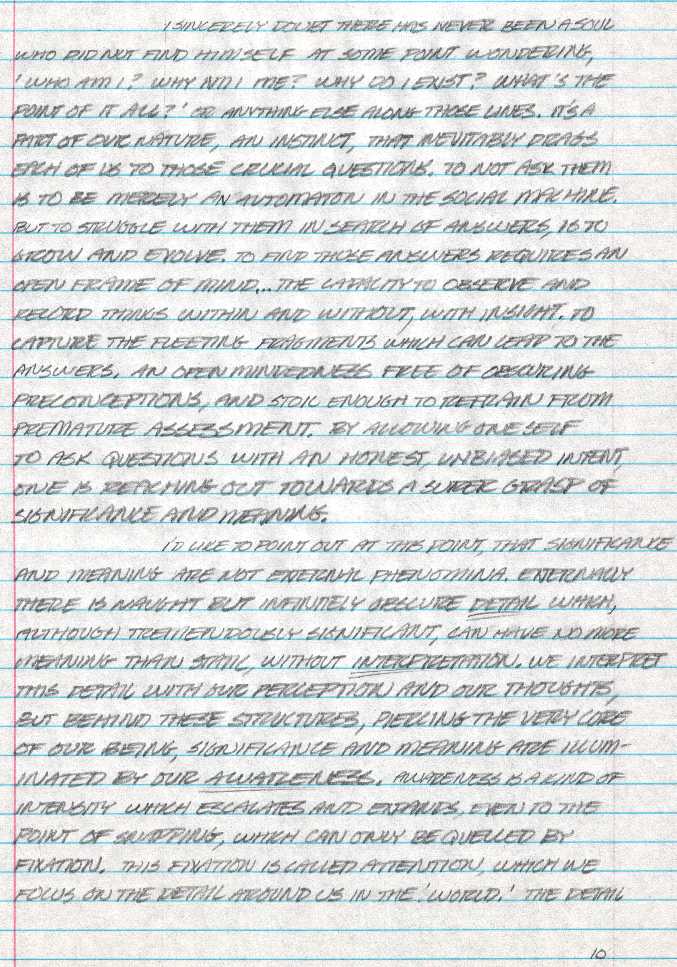 I SINCERELY DOUBT THERE HAS NEVER BEEN A SOUL
WHO DID NOT FIND HIMSELF AT SOME POINT WONDERING,
'WHO AM I? WHY AM I ME? WHY DO I EXIST? WHAT'S THE
POINT OF IT ALL?' OR ANYTHING ELSE ALONG THOSE LINES. IT'S A
PART OF OUR NATURE, AN INSTINCT, THAT INEVITABLY DRAGS
EACH OF US TO THOSE CRUCIAL QUESTIONS. TO NOT ASK THEM
IS TO BE MERELY AN AUTOMATON IN THE SOCIAL MACHINE.
BUT TO STRUGGLE WITH THEM IN SEARCH OF ANSWERS, IS TO
GROW AND EVOLVE. TO FIND THOSE ANSWERS REQUIRES AN
OPEN FRAME OF MIND... THE CAPACITY TO OBSERVE AND
RECORD THINGS WITHIN AND WITHOUT, WITH INSIGHT. TO
CAPTURE THE FLEETING FRAGMENTS WHICH CAN LEAD TO THE
ANSWERS. AN OPENMINDEDNESS FREE OF OBSCURING
PRECONCEPTIONS, AND STOIC ENOUGH TO REFRAIN FROM
PREMATURE ASSESSMENT. BY ALLOWING ONESELF
TO ASK QUESTIONS WITH AN HONEST, UNBIASED INTENT,
ONE IS REACHING OUT TOWARDS A SURER GRASP OF
SIGNIFICANCE AND MEANING.
I'D LIKE TO POINT OUT AT THIS POINT, THAT SIGNIFICANCE
AND MEANING ARE NOT EXTERNAL PHENOMINA. EXTERNALLY
THERE IS NAUGHT BUT INFINITELY OBSCURE DETAIL WHICH,
ALTHOUGH TREMENDOUSLY SIGNIFICANT, CAN HAVE NO MORE
MEANING THAN STATIC, WITHOUT INTERPRETATION. WE INTERPRET
THIS DETAIL WITH OUR PERCEPTION AND OUR THOUGHTS,
BUT BEHIND THESE STRUCTURES, PIERCING THE VERY CORE
OF OUR BEING, SIGNIFICANCE AND MEANING ARE ILLUM-
INATED BY OUR AWARENESS. AWARENESS IS A KIND OF
INTENSITY WHICH ESCALATES AND EXPANDS, EVEN TO THE
POINT OF SNAPPING, WHICH CAN ONLY BE QUELLED BY
FIXATION. THIS FIXATION IS CALLED ATTENTION, WHICH WE
FOCUS ON THE DETAIL AROUND US IN THE 'WORLD.' THE DETAIL
10